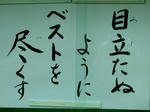 目立たぬ
ように
ベストを
尽くす